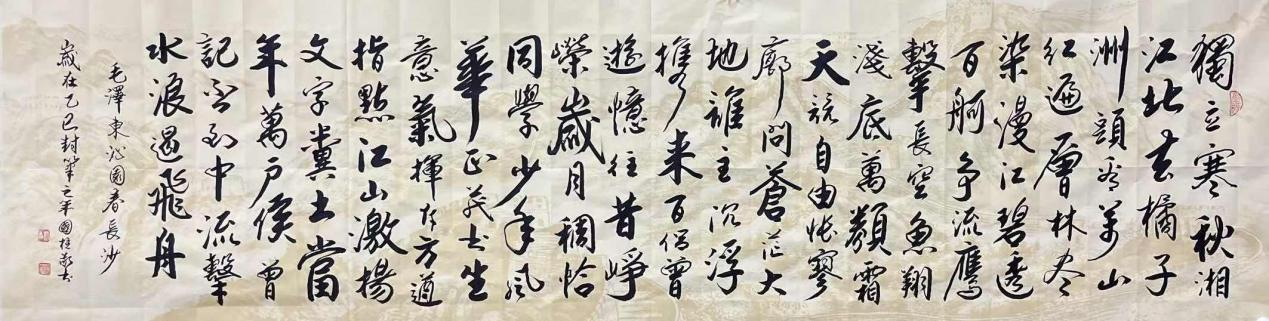 獨立寒秋湘
江北去橘子
洲頭看萬山
紅遍層林尽
染漫江碧透
百舸争流鷹
擊長空魚翔
淺底萬類霜
天競自由悵寥
廓問蒼茫大
地誰主沉浮
携来百侣曾
遊憶往昔崢
嶸歲月稠恰
同學少年風
華正茂书生
意氣揮斥方遒
指點江山激揚
文字糞土當
年萬戶侯曾
記否到中流擊
水浪遏飛舟
毛澤東沁園春長沙
歲在乙巳封筆之年國